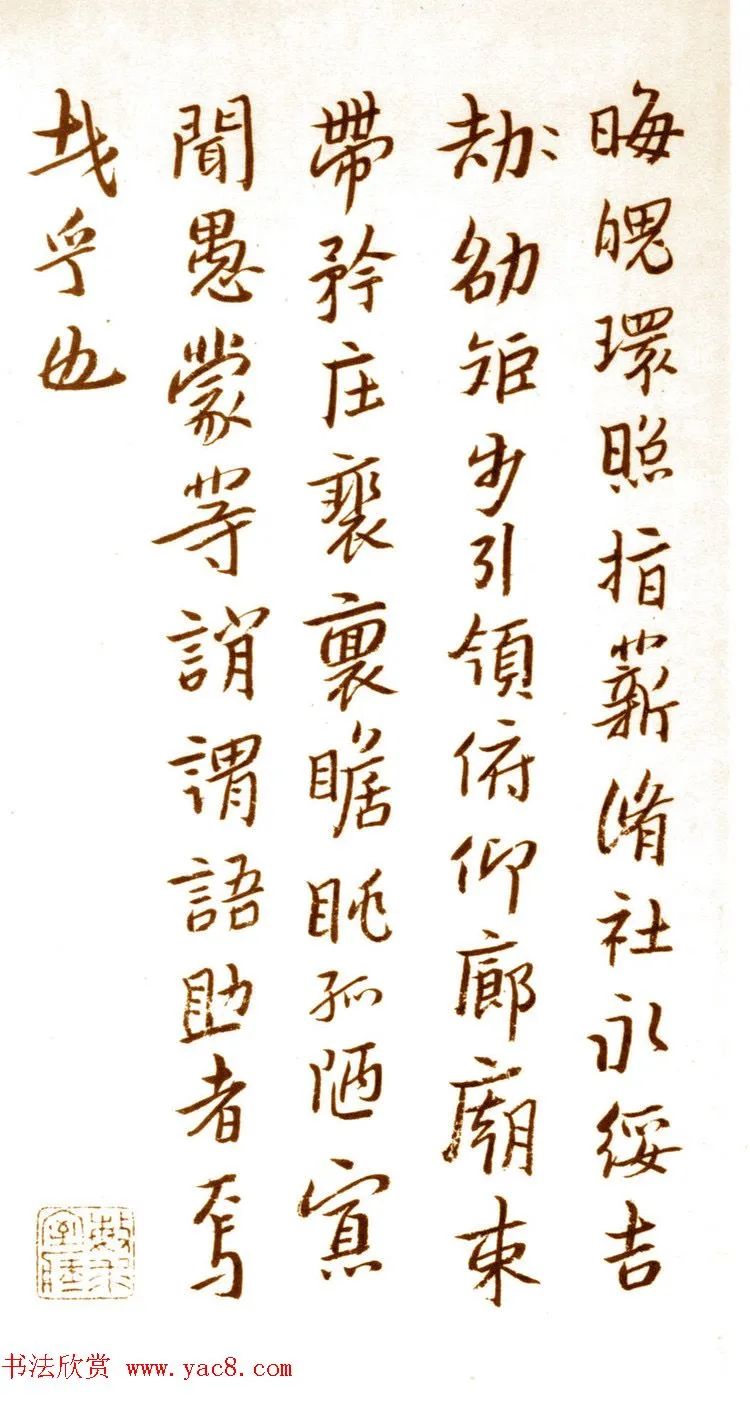 晦魄環照指薪脩社永綏吉
劫劭矩步引領俯仰廊廟束
帶矜庄裵瞻眺孤陋寡
聞愚蒙等誚謂語助者焉
哉乎也
书法欣赏 www.yac8.com